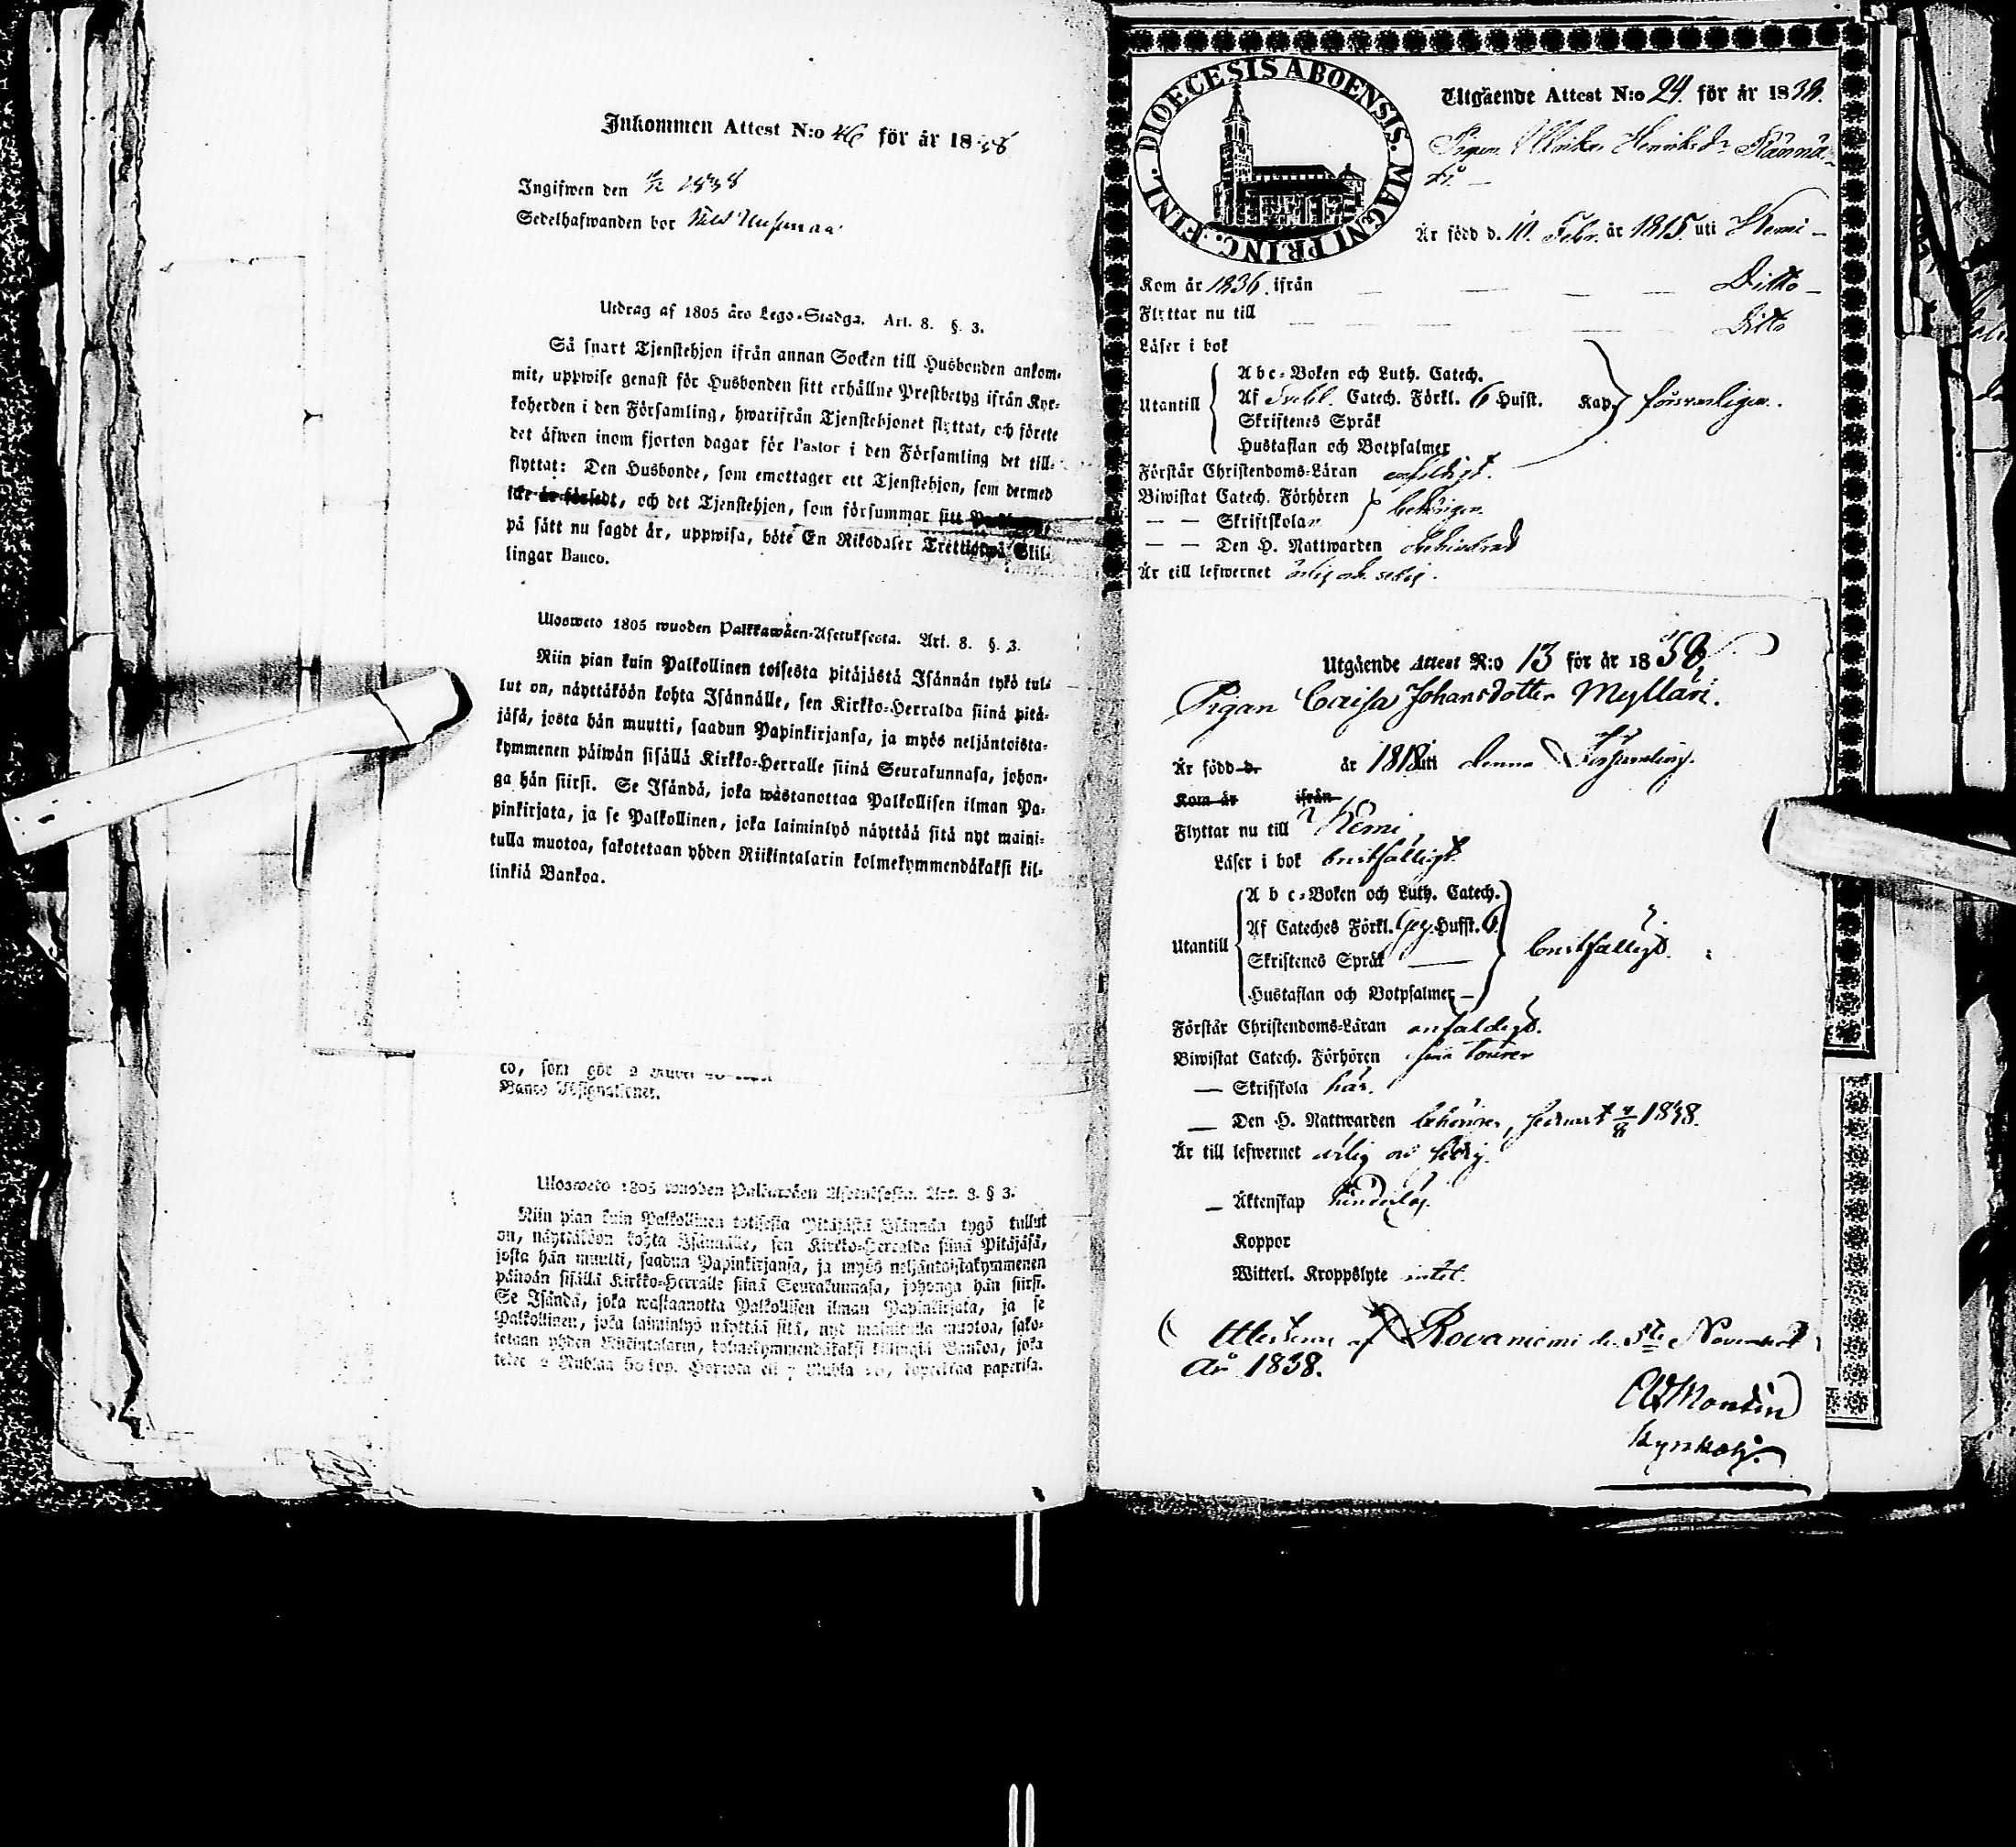 Inkommen Attest N:o 46 för år 1838
Ingifwen den 1838
Sedelhafwanden bor
Utdrag af 1805 års Lego-Stadga. Art. 8. §. 3.
Så snart Tjenstehjon ifrån annan Socken till Husbonden ankom-
mit, uppwise genast för Husbonden sitt erhållne Prestbetyg ifrån Kyr-
koherden i den Församling, hwarifrån Tjenstehjonet flyttat, och förete
det äfwen inom fjorton dagar för Pastor i den Församling det till-
flyttat: Den Husbonde, som emottager ett Tjenstehjon, som dermed
icke är försedt, och det Tjenstehjon, som försummar sitt
på sätt nu sagdt är, uppwisa, böte En Riksdaler Trettiotwå Skil-
lingar Banco.
Ulosweto 1805 wuoden Palkkawäen-Asetuksesta. Art. 8. §. 3.
Niin pian kuin Palkollinen toisesta pitäjästä Isännän tykö tul-
lut on, näyttäköön kohta Isännälle, sen Kirkko-Herralda siinä pitä-
jäsä, josta hän muutti, saadun Papinkirjansa, ja myös neljäntoista-
kymmenen päiwän sisällä Kirkko-Herralle siinä Seurakunnasa, johon-
ga hän siirsi. Se Isändä, joka wastanottaa Palkollisen ilman Pa-
pinkirjata, ja se Palkollinen, joka laiminlyö näyttää sitä nyt maini-
tulla muotoa, sakotetaan yhden Riikintalarin kolmekymmendäkaksi kil-
linkiä Bankoa.
co, som gör 2
Banco Assignationer.
Ulosweto 1805 wuoden Palkawäen Asetuksesta. Art. 8. § 3.
Niin pian kuin Palkollinen toisesta Pitäjästä Isännän tygö tullut
on, näyttäköön kohta Isännälle, sen Kirkko-Herralda siinä Pitäjäsä,
josta hän muutti, saadun Papinkirjansa, ja myös neljäntoistakymmenen
päiwän sisällä Kirkko-Herralle siinä Seurakunnasa, johonga hän siirsi.
Se Isändä, joka wastaanotta Palkollisen ilman Papinkirjata, ja se
Palkollinen, joka laiminlyö näyttää sitä, nyt mainitulla muotoa, sako-
tetaan yhden Riikintalarin, kolmekymmendäkaksi killingiä Bankoa, joka
tekee 2 Rublaa kop. Hopiota eli 7 Rubla kopeikkaa paperisa.
DIOECESIS ABOENSIS. MAGNI PRINC. FINL.
Utgående Attest N:o 24. för år 1838.
Pigan Ulrika Henriksdr
Är född d. 10. Febr. år 1815. uti Kemi
Kom år 1836. ifrån Ditto
Flyttar nu till Ditto
Läser i bok
Utantill
A b c-Boken och Luth. Catech.
Af Svebil. Catech. Förkl. 6 Hufst. Kap. försvarligen.
Skriftenes Språk
Hustaflan och Botpsalmer
Förstår Christendoms-Läran enfaldigt.
Biwistat Catech. Förhören
— — Skriftskolan behörigen
— — Den H. Nattwarden obehindrad
Är till lefwernet ärlig och sedig.
Utgående Attest N:o 13 för år 1838.
Pigan Caisa Johansdotter Mylläri.
Är född d. år 1818 uti denna Församling.
Kom år ifrån
Flyttar nu till Kemi
Läser i bok bristfälligt.
Utantill
A b c-Boken och Luth. Catech.
Af Cateches Förkl. Hufst. 6.
Skriftenes Språk — bristfälligt.
Hustaflan och Botpsalmer —
Förstår Christendoms-Läran enfaldigt.
Biwistat Catech. Förhören sina tourer
— Skriftskola här.
— Den H. Nattwarden behörigen, senast 1838.
Är till lefwernet ärlig och sedig.
— Äktenskap hinderlös.
Koppor
Witterl. Kroppslyte intet.
Attesteras af Rovaniemi den 5te November
År 1838.
Kyrkoh.